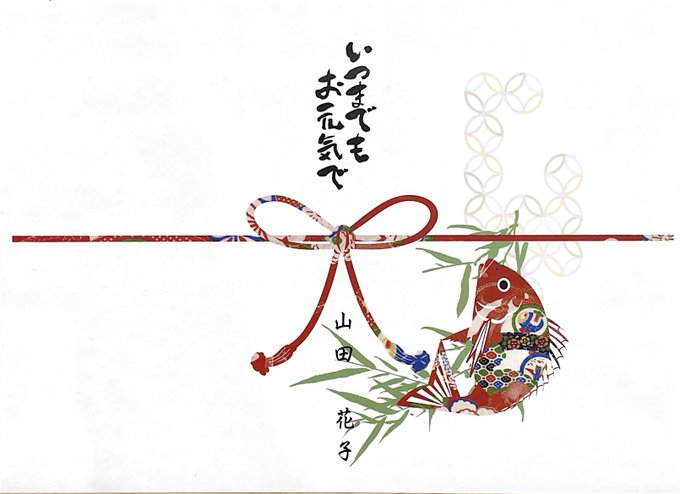 いつまでも
お元気で
山田 花子